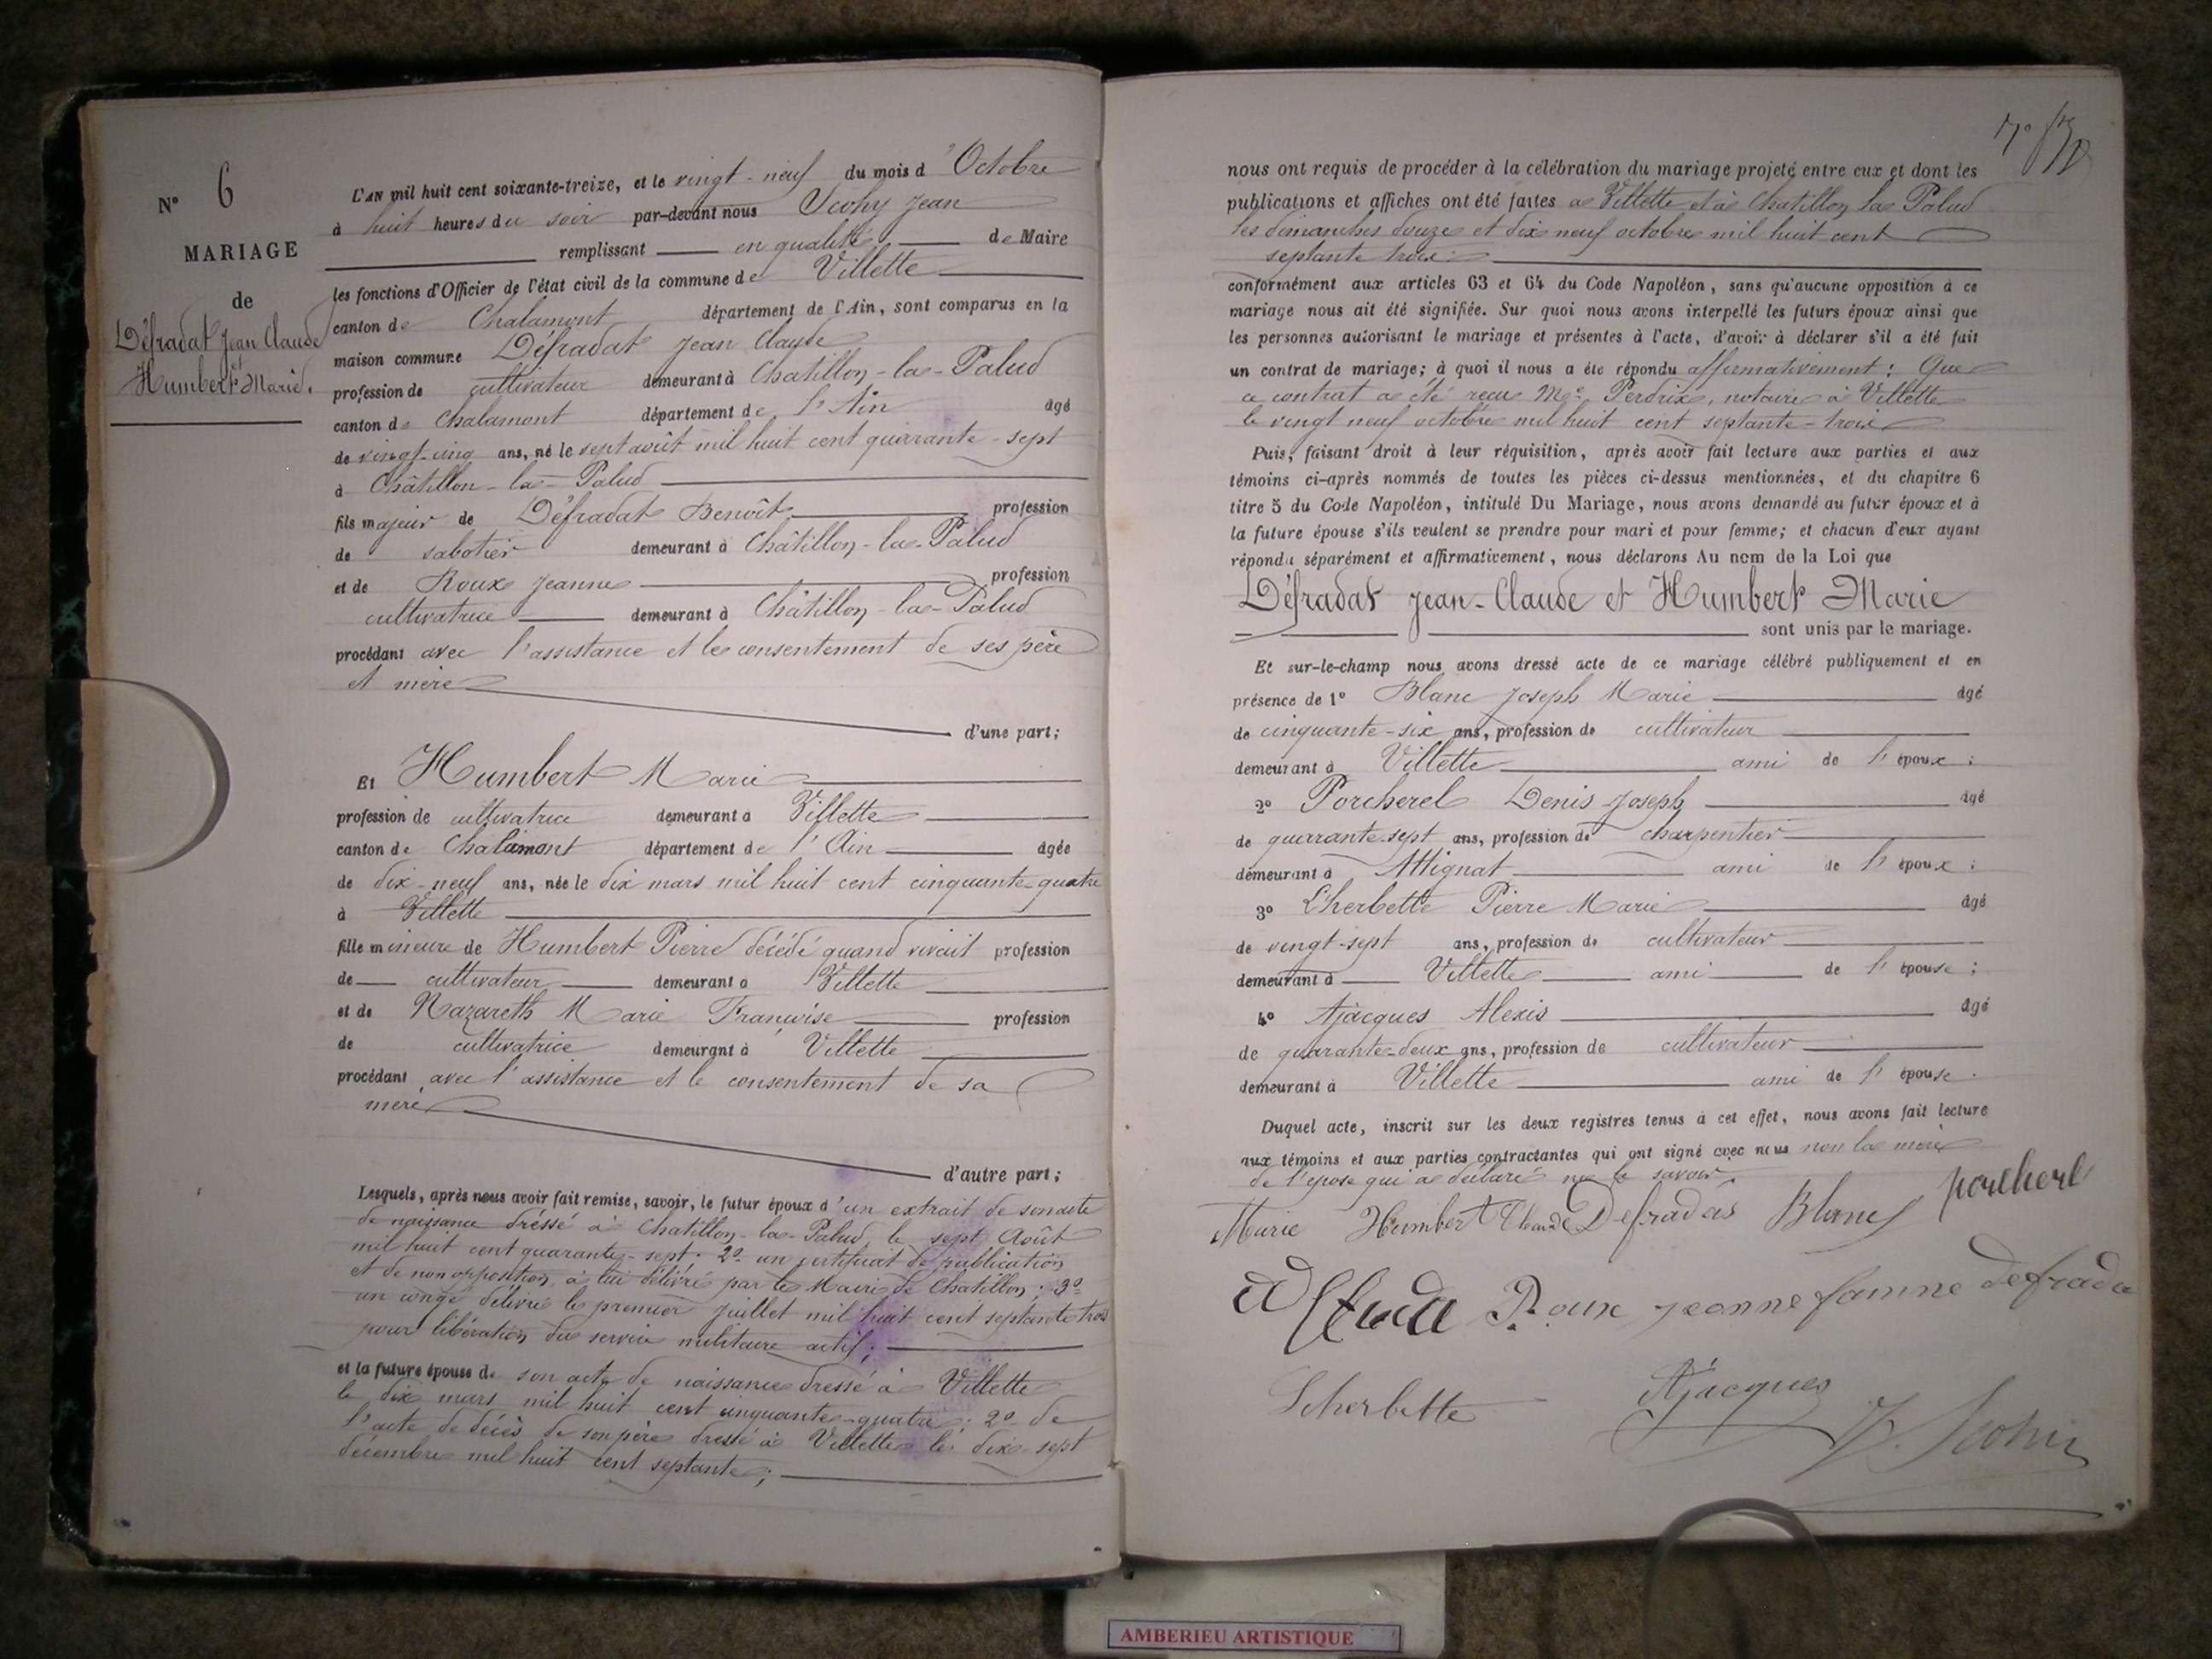 N° 6
MARIAGE
de
Défradat Jean Claude
et
Humbert Marie.
L'AN mil huit cent soixante-treize, et le vingt-neuf du mois d'Octobre
à huit heures du soir par-devant nous Scohy Jean
remplissant en qualité de Maire
les fonctions d'Officier de l'état civil de la commune de Villette
canton de Chalamont département de l'Ain, sont comparus en la
maison commune Défradat Jean Claude
profession de cultivateur demeurant à Chatillon-la-Palud
canton de Chalamont département de l'Ain âgé
de vingt-cinq ans, né le sept août mil huit cent quarante-sept
à Châtillon-la-Palud
fils majeur de Défradat Benoît profession
de sabotier demeurant à Châtillon-la-Palud
et de Roux Jeanne profession
cultivatrice demeurant à Châtillon-la-Palud
procédant avec l'assistance et le consentement de ses père
et mère
d'une part;
Et Humbert Marie
profession de cultivatrice demeurant à Villette
canton de Chalamont département de l'Ain âgée
de dix-neuf ans, née le dix mars mil huit cent cinquante-quatre
à Villette
fille mineure de Humbert Pierre décédé quand vivait profession
de cultivateur demeurant à Villette
et de Nazareth Marie Françoise profession
de cultivatrice demeurant à Villette
procédant avec l'assistance et le consentement de sa
mère
d'autre part;
Lesquels, après nous avoir fait remise, savoir, le futur époux d'un extrait de son acte
de naissance dréssé à Chatillon-la-Palud, le sept Août
mil huit cent quarante-sept; 2° un certificat de publication
et de non opposition, à lui délivré par le Maire de Chatillon; 3°
un congé délivré le premier Juillet mil huit cent septante trois
pour libération du service militaire actif;
et la future épouse de son acte de naissance dressé à Villette
le dix mars mil huit cent cinquante-quatre; 2° de
l'acte de décès de son père dressé à Villette le dix-sept
décembre mil huit cent septante;
nous ont requis de procéder à la célébration du mariage projeté entre eux et dont les
publications et affiches ont été faites à Villette et à Chatillon la Palud
les dimanches douze et dix neuf octobre mil huit cent
septante trois
conformément aux articles 63 et 64 du Code Napoléon, sans qu'aucune opposition à ce
mariage nous ait été signifiée. Sur quoi nous avons interpellé les futurs époux ainsi que
les personnes autorisant le mariage et présentes à l'acte, d'avoir à déclarer s'il a été fait
un contrat de mariage; à quoi il nous a été répondu affirmativement: Que
ce contrat a été reçu Me Perdrix, notaire à Villette
le vingt neuf octobre mil huit cent septante-trois
Puis, faisant droit à leur réquisition, après avoir fait lecture aux parties et aux
témoins ci-après nommés de toutes les pièces ci-dessus mentionnées, et du chapitre 6
titre 5 du Code Napoléon, intitulé Du Mariage, nous avons demandé au futur époux et à
la future épouse s'ils veulent se prendre pour mari et pour femme; et chacun d'eux ayant
répondu séparément et affirmativement, nous déclarons Au nom de la Loi que
Défradat Jean-Claude et Humbert Marie
sont unis par le mariage.
Et sur-le-champ nous avons dressé acte de ce mariage célébré publiquement et en
présence de 1° Blanc Joseph Marie âgé
de cinquante-six ans, profession de cultivateur
demeurant à Villette ami de l'époux;
2° Porcherel Denis Joseph âgé
de quarante-sept ans, profession de charpentier
demeurant à Attignat ami de l'époux;
3° Lherbette Pierre Marie âgé
de vingt-sept ans, profession de cultivateur
demeurant à Villette ami de l'épouse;
4° Ajacques Alexis âgé
de quarante-deux ans, profession de cultivateur
demeurant à Villette ami de l'épouse.
Duquel acte, inscrit sur les deux registres tenus à cet effet, nous avons fait lecture
aux témoins et aux parties contractantes qui ont signé avec nous non la mère
de l'épose qui a déclaré ne le savoir.
Marie Humbert Claude Defradas Blanc porcherl
Roux jeanne famne defrada
Lherbette Ajacques J. Scohy
AMBERIEU ARTISTIQUE